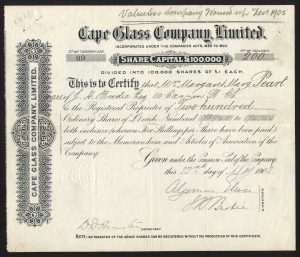 Valueless Company Wound up Sept 1905
Cape Glass Company, Limited.
INCORPORATED UNDER THE COMPANIES ACTS, 1862 TO 1900.
Nº OF CERTIFICATE
89
Nº OF SHARES
200
SHARE CAPITAL £100,000
DIVIDED INTO 100,000 SHARES OF £1 EACH.
This is to Certify that Mrs Margaret Mary Peart
care of J. H. Brodie Esq 40 Cannon St
is the Registered Proprietor of Two hundred
Ordinary Shares of £1 each Numbered
both inclusive whereon Five Shillings per Share have been paid subject
to the Memorandum and Articles of Association of the
Company.
Given under the common Seal of the Company
this 22nd day of 1903
SECRETARY
NOTE:- NO TRANSFER OF THE ABOVE SHARES CAN BE REGISTERED WITHOUT THE PRODUCTION OF THIS CERTIFICATE.
CAPE GLASS COMPANY, LIMITED.